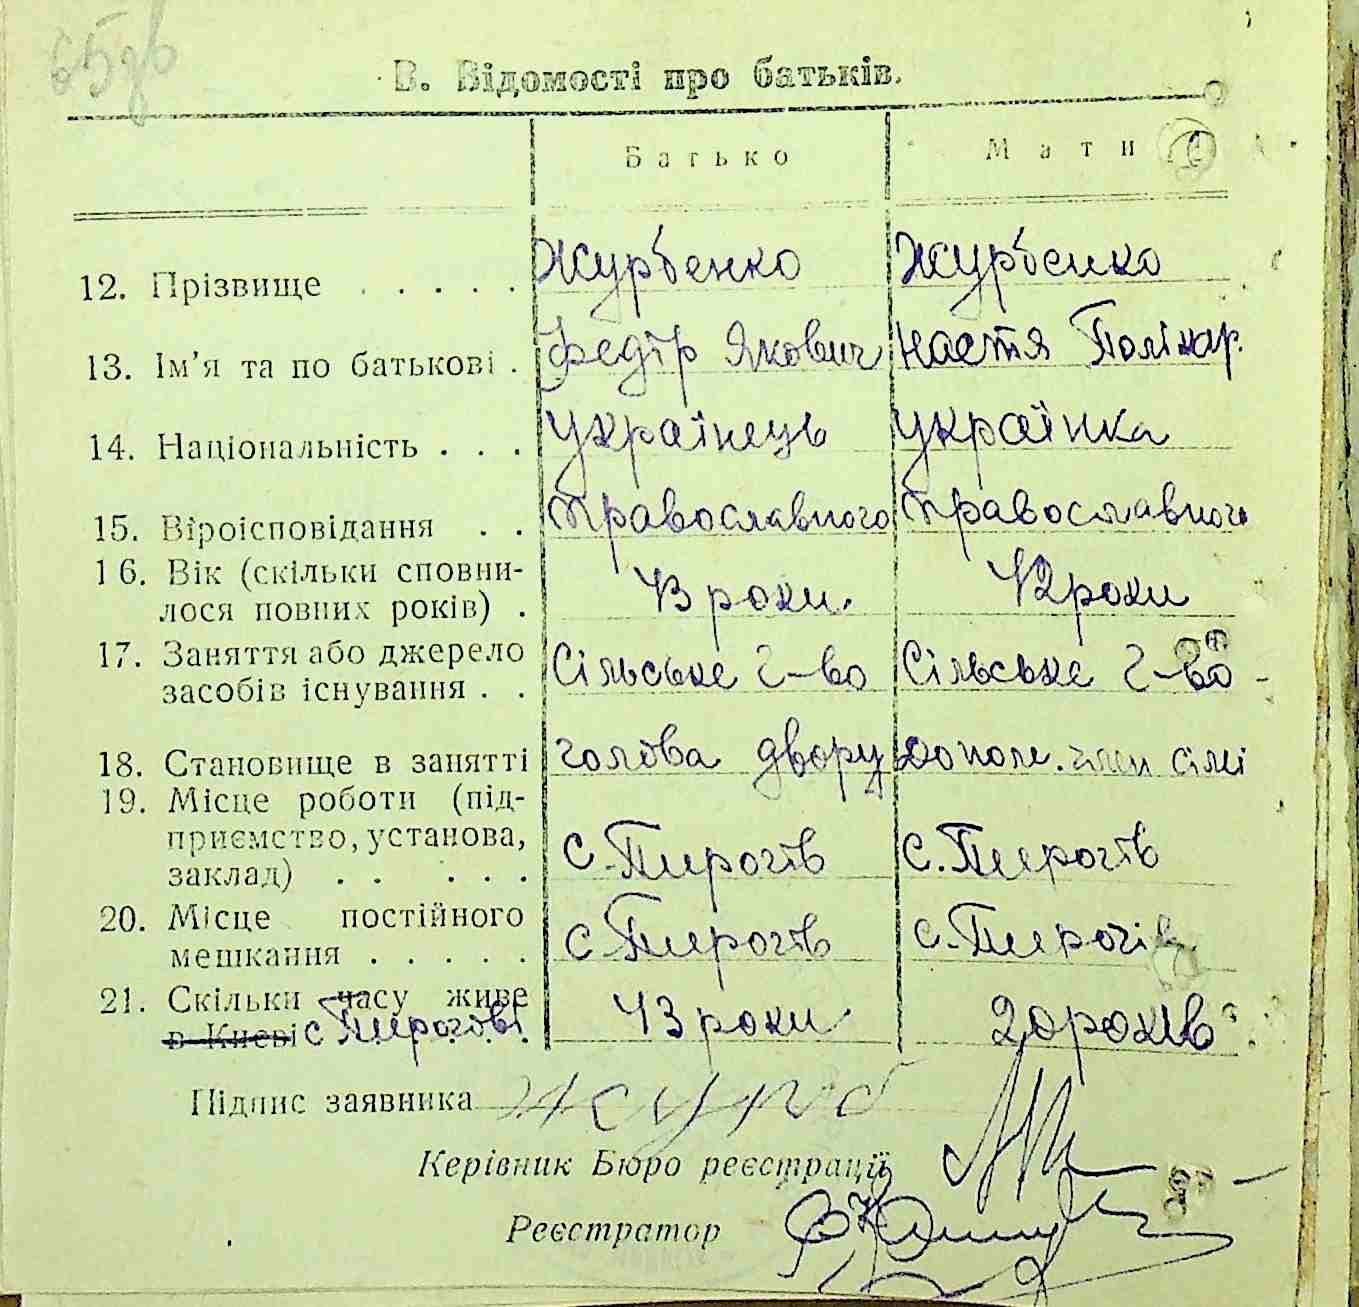 В. Відомості про батьків.
Батько Мати
12. Прізвище . . . . . Журбенко Журбенко
13. Ім'я та по батькові . Федір Якович Настя Полікар.
14. Національність . . . Українець Українка
15. Віроісповідання . . Православного Православного
16. Вік (скільки сповни-
лося повних років) . 43 роки. 42 роки
17. Заняття або джерело
засобів існування . . Сільське г-во Сільське г-во
18. Становище в занятті голова двору Допом. член сімі
19. Місце роботи (під-
приємство, установа,
заклад) . . . . . с. Пирогів с. Пирогів
20. Місце постійного
мешкання . . . . . с. Пирогів с. Пирогів
21. Скільки часу живе
в Києві с Пирогові 43 роки 20 років
Підпис заявника Журб
Керівник Бюро реєстрації
Реєстратор